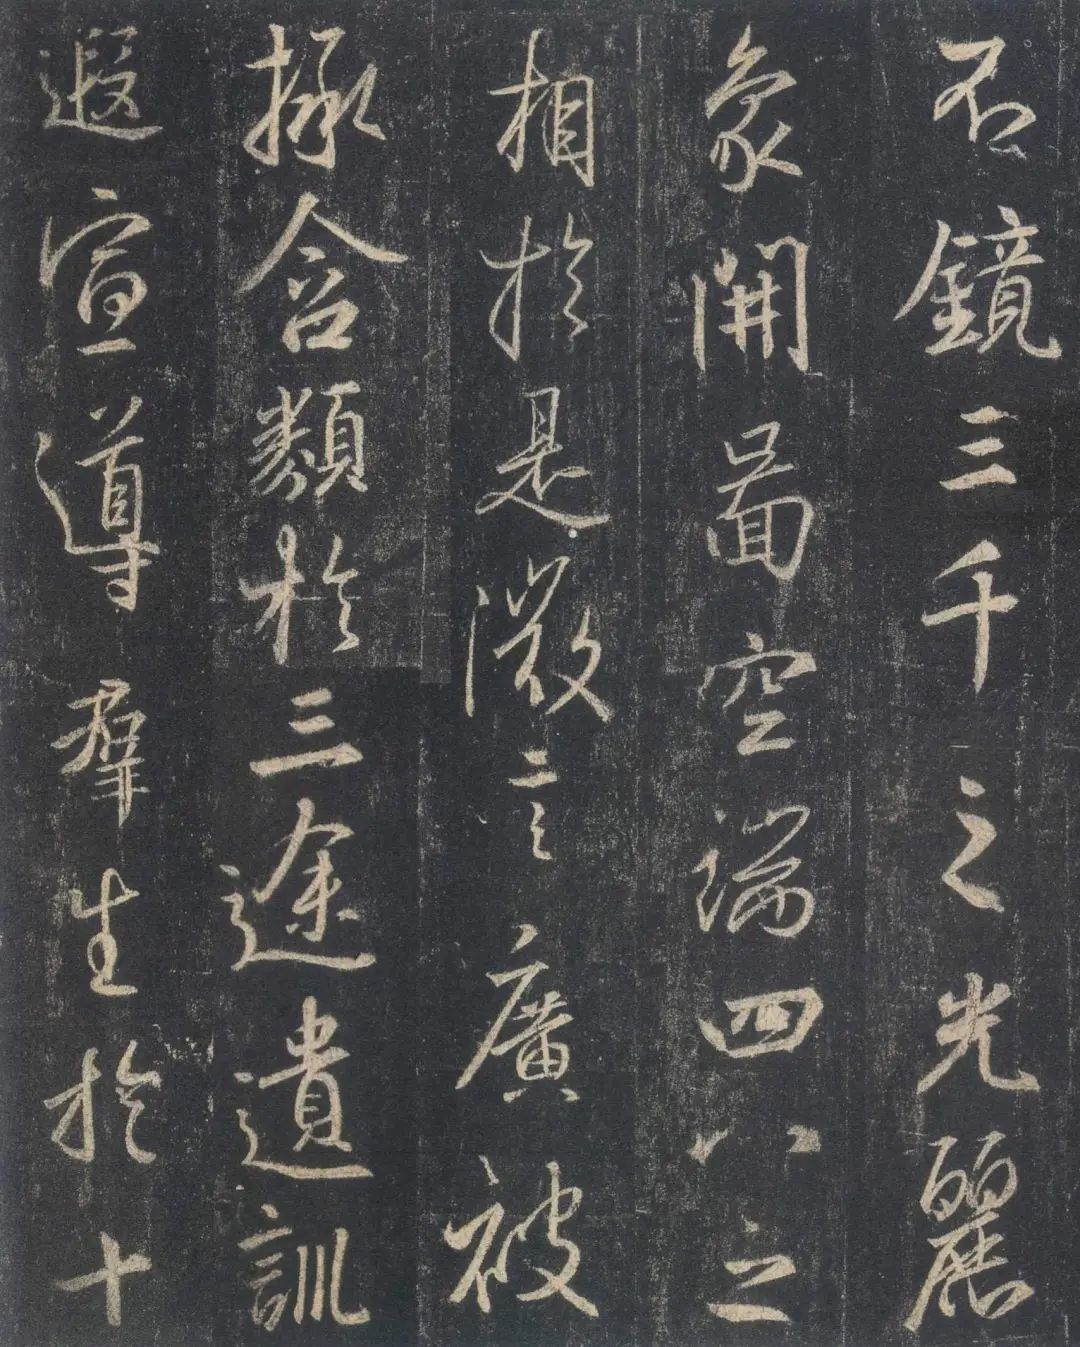 不鏡三千之光麗
象開圖空端四八之
相於是微言廣被
拯含類於三途遺訓
遐宣導群生於十